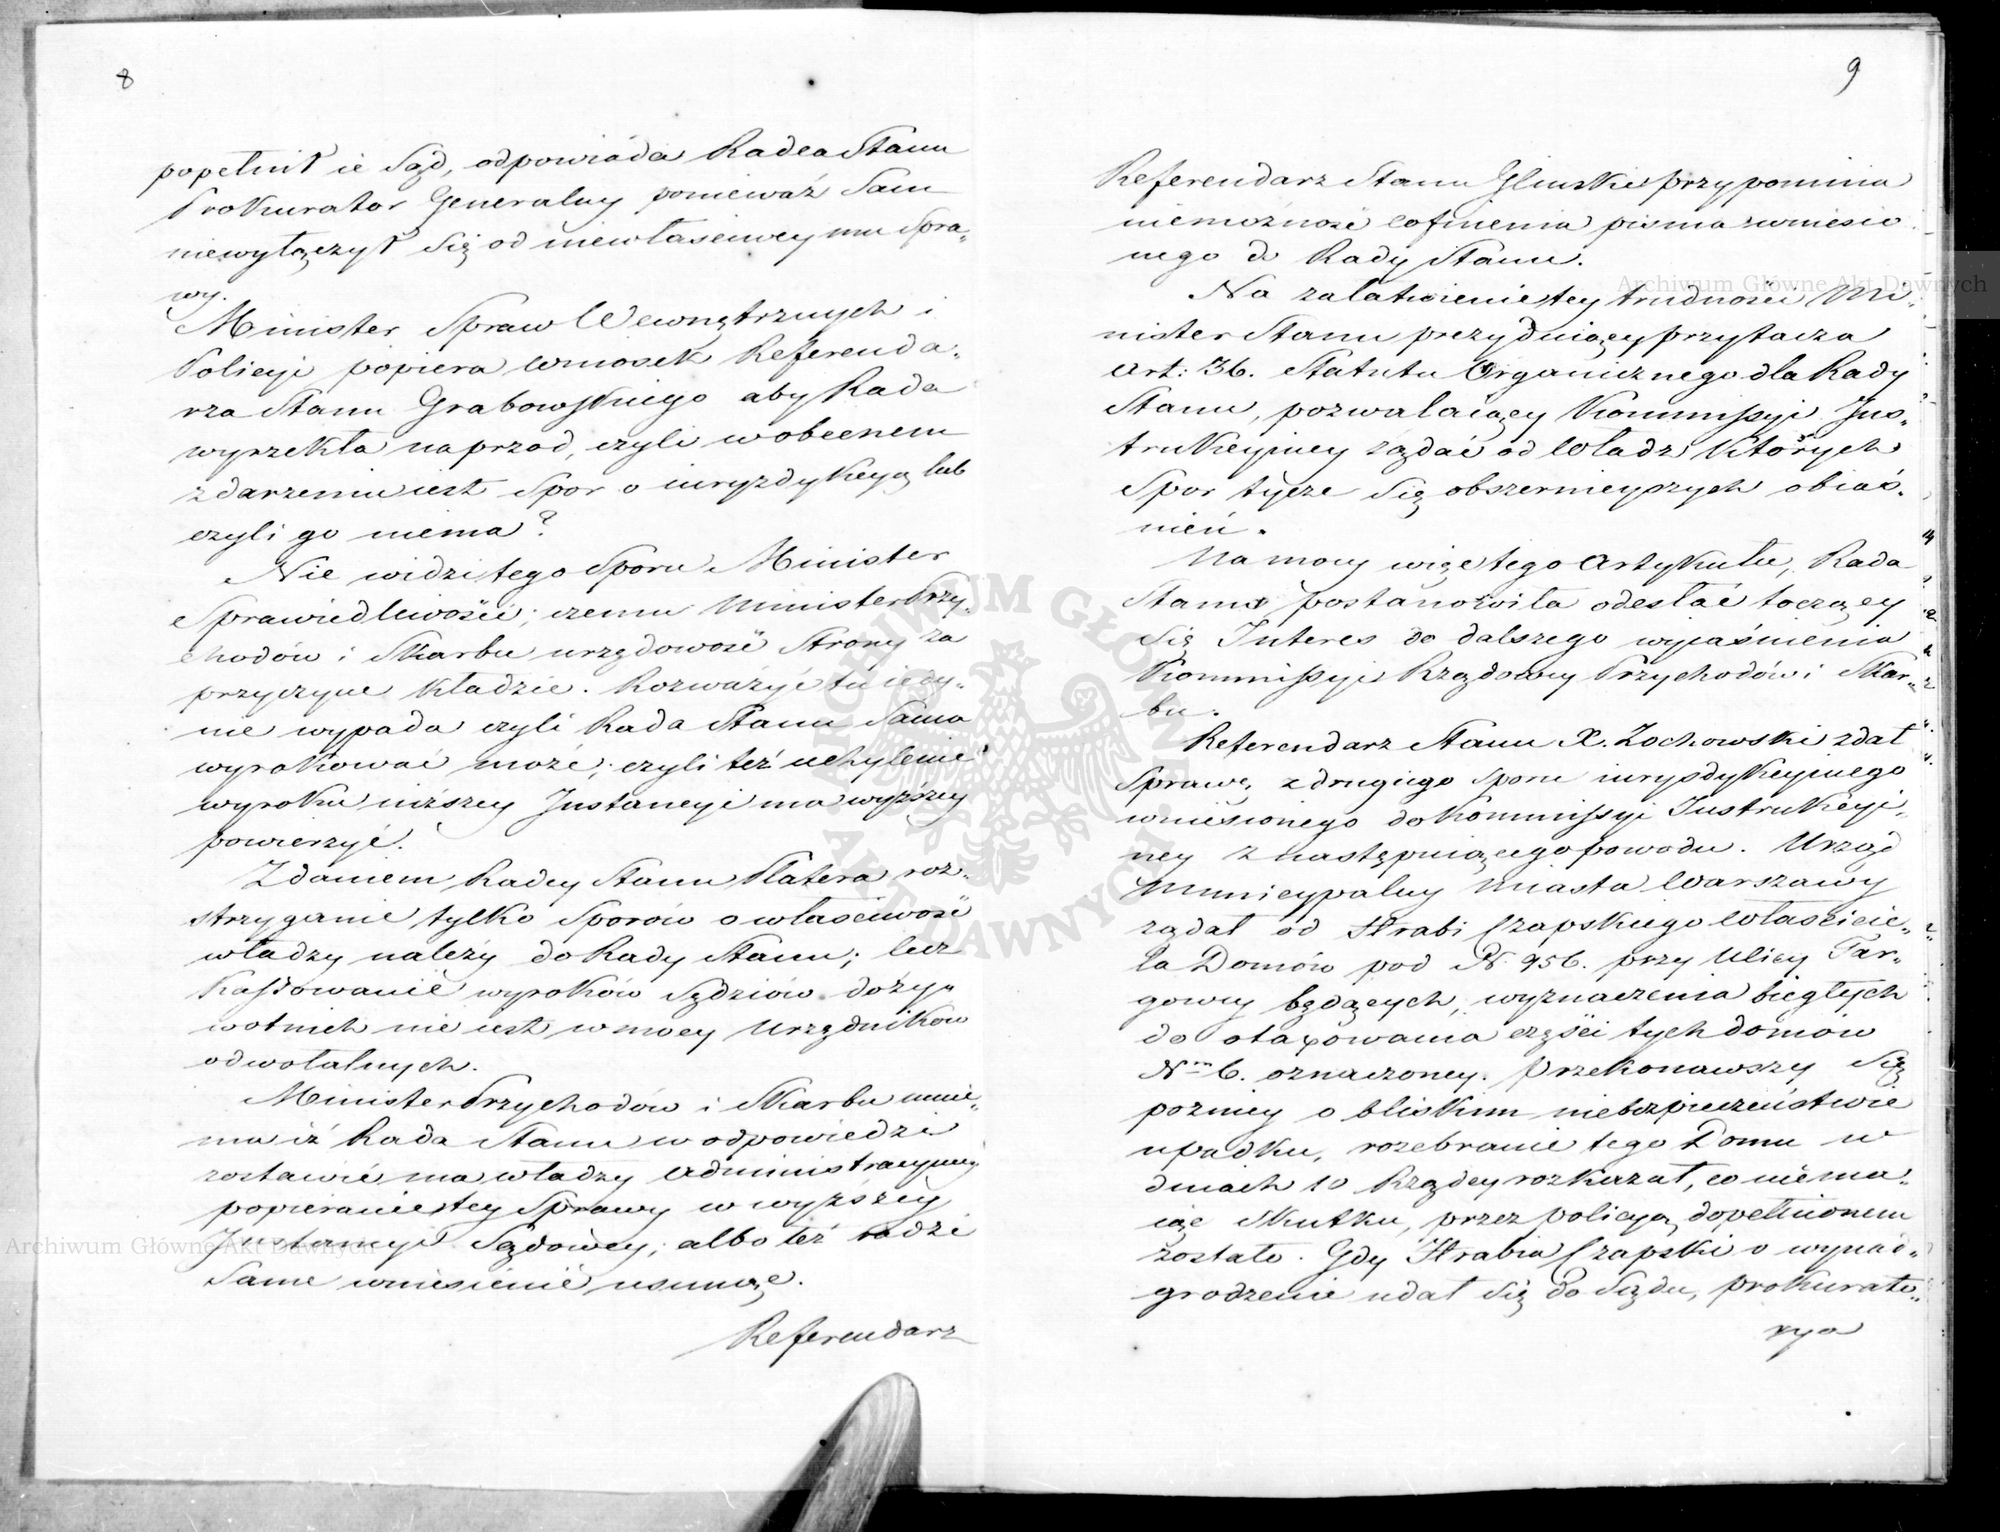 8
popełnił ie Sąd, odpowiáda Radca Stanu
Prokurator Generalny ponieważ Sam
niewyłączył Się od niewłasciwey mu Spra„
wy.
Minister Spraw Wewnętrznych i
Policyi popiera wniosek Referenda„
rza Stanu Grabowskiego aby Rada
wyrzekła naprzod, czyli w obecnem
zdarzeniu iest Spor o iuryzdykcyą lub
czyli go niema?
Nie widzi tego Sporu Minister
Sprawiedliwości; czemu Minister Przy„
chodów i Skarbu urzędowość Strony za
przyczynę kładzie. Rozważyć tu iedy„
nie wypada czyli Rada Stanu Sama
wyrokować może; czyli też uchylenie
wyroku niższey Instancyi ma wyższey
powierzyć.
Zdaniem Radcy Stanu Platera roz„
strzyganie tylko Sporów o własciwość
władzy należy do Rady Stanu; lecz
Kassowanie wyroków Sędziów doży„
wotnich nie iest w mocy Urzędników
odwołalnych.
Minister Przychodów i Skarbu mnie„
ma iż Rada Stanu w odpowiedzi
zostawić ma władzy Administracyiney
popieranie tey Sprawy w wyższey
Instancyi Sądowey; albo też radzi
Same wniesienie usunąć.
Referendarz
9
Referendarz Stanu Gliński przypomina
niemożność cofnienia pisma wniesio„
nego do Rady Stanu.
Na załatwienie tey trudności Mi„
nister Stanu prezyduiący przytacza
Art: 36. Statutu Organicznego dla Rady
Stanu, pozwalaiący Kommissyi Ins„
trukcyiney żądać od Władz których
Spor tycze Się obszernieyszych obiaś„
nień.
Na mocy więc tego Artykułu, Rada
Stanu postanowiła odesłać toczący
Się Interes do dalszego wyiaśnienia
Kommissyi Rządowey Przychodów i Skar„
bu.
Referendarz Stanu X. Zochowski zdał
Sprawę z drugiego Sporu iurysdykcyinego
wniesionego do Kommissyi Instrukcyi„
ney z następuiącego powodu. Urząd
Municypalny Miasta Warszawy
żądał od Hrabi Czapskiego Właścicie„
la Domów pod N. 956. przy Ulicy Tar„
gowey będących, wyznaczenia biegłych
do otaxowania części tych domów
Nrm 6. oznaczoney. Przekonawszy Się
pozniey o bliskim niebezpieczeństwie
upadku, rozebranie tego Domu w
dniach 10 Rządcy rozkazał, co niema„
iąc Skutku, przez policyą dopełnionem
zostało. Gdy Hrabia Czapski o wynad„
grodzenie udał Się do Sądu, prokurato„
rya
Archiwum Główne Akt Dawnych
Archiwum Główne Akt Dawnych
ARCHIWUM GŁÓWNE AKT DAWNYCH